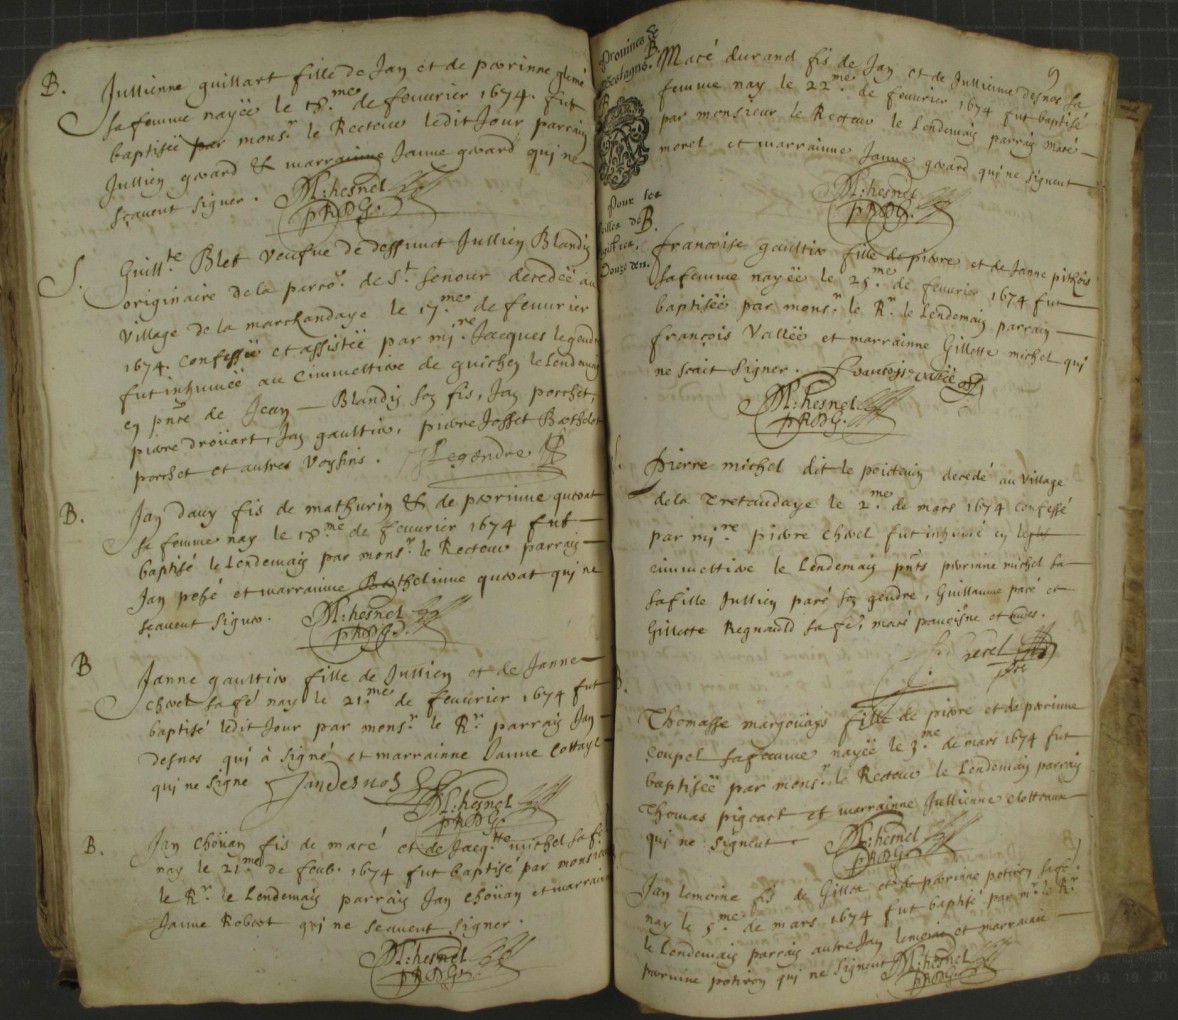 B. Jullienne guillart fille de Jan et de perrinne glemé
sa femme nayëe le 18.me de feuurier 1674. fut
baptisëe par monsr. le Recteur ledit Jour parrain
Jullien gerard & marrainne Janne gerard qui ne
sçauent signer.
M: hesnel
pRDG.
S. Guill.te Blet Veufue de deffunct Jullien Blandin
originaire de la parro. de St. senour decedëe au
village de la marchandaye le 17.me de feuurier
1674. confessëe et assistëe par mi.re Jacques legendre
fut inhumëe au cimmetiere de guichen le lendemain
en pnce de Jean — Blandin son fis, Jan porchet,
pierre droüart, Jan gaultier, pierre Josset Barthelot
porchet et autres Voysins. J Legendre
B. Jan dauy fis de mathurin & de perrinne querat
sa femme nay le 18.me de feuurier 1674 fut
baptisé le lendemain par monsr. le Recteur parrain
Jan pebé et marrainne Barthelinne querat qui ne
sçauent signer.
M: hesnel
pRDG.
B Janne gaultier fille de Jullien et de Janne
cherel sa fé nay le 21.me de feuurier 1674 fut
baptisé ledit Jour par monsr. le Rr. parrain Jan
desnos qui à signé et marrainne Janne Cottayl
qui ne signe Jan desnos
M: hesnel
pRDG.
B. Jan choüan fis de macé et de Jacqtte michel sa fe
nay le 21.me de feub. 1674 fut baptisé par monsieur
le Rr. le lendemain parrain Jan choüan et marrain
Janne Robert qui ne sçauent signer.
M: hesnel
pRDG.
9
Prouince de
Bretagne.
Pour les
B. Macé durand fis de Jan et de Jullienne desnos sa
femme nay le 22.me de feuurier 1674 fut baptisé
par monsieur le Recteur le lendemain parrain Macé
morel et marrainne Janne gerard qui ne signent
M: hesnel
pRDG.
B. francoise gaultier fille de pierre et de Janne pithois
sa femme nayëe le 25.me de feuurier 1674 fut
baptisëe par monsr. le Rr. le lendemain parrain
françois Vallëe et marrainne Gillette michel qui
ne scait signer. francoys vallëe
M: hesnel
pRDG.
Pierre michel dit le poicteuin decedé au village
de la Tretaudaye le 2.me de mars 1674 confessé
par mi.re pierre cherel fut inhumé en le
cimmetiere le lendemain pnts perrinne michel sa
sa fille Jullien paré son gendre, Guillaume paré et
Gillette Regnauld sa fe, macé et
cherel
pbr
B. Thomasse marjoüays fille de pierre et de perrinne
coupel sa femme nayëe le 3.me de mars 1674 fut
baptisëe par monsr. le Recteur le lendemain parrain
Thomas pigeart et marrainne Jullienne
qui ne signent
M: hesnel
pRDG.
Jan lemoine fis de Gilles et de perrinne potiron sa fe
nay le 5.me de mars 1674 fut baptisé par mr. le Rr.
le lendemain parrain autre Jan lemoine et marrainne
perrinne potiron qui ne signent M: hesnel
pRDG.